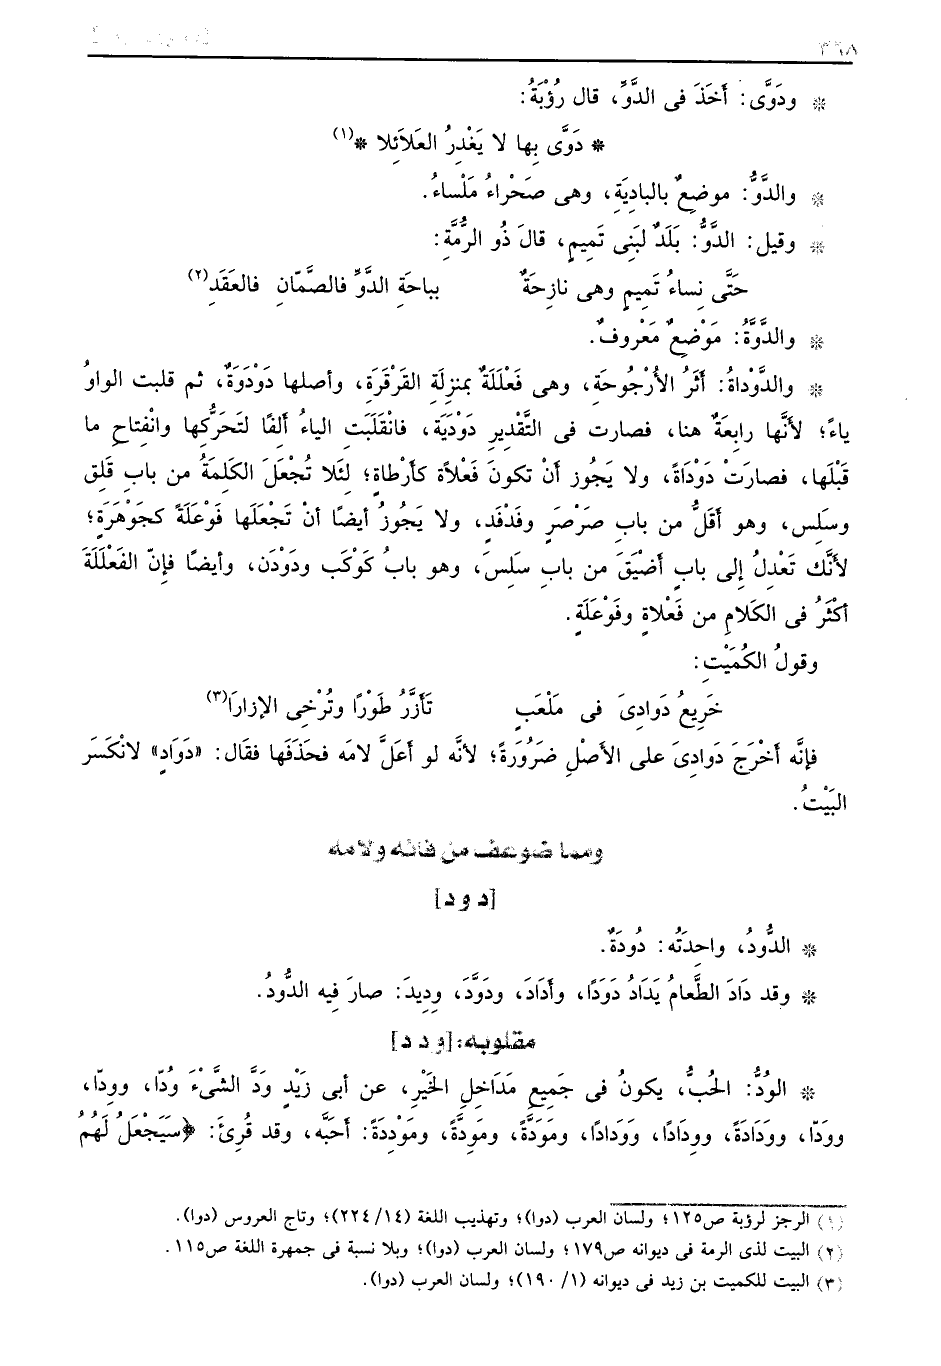 ٣٦٨
* ودَوَّى: أَخَذَ فى الدَّوِّ، قال رُؤْبَةُ:
* دَوَّى بها لا يَغْدِرُ العَلاَئِلا *(١)
* والدَّوُّ: موضعٌ بالبادِيَةِ، وهى صَحْراءُ مَلْساءُ.
* وقيل: الدَّوُّ: بَلَدٌ لبَنِى تَمِيمٍ، قالَ ذُو الرُّمَّةِ:
حَتَّى نِساءُ تَمِيمٍ وهى نازِحَةٌ بباحَةِ الدَّوِّ فالصَّمّانِ فالعَقَدِ(٢)
* والدَّوَّةُ: مَوْضِعٌ مَعْروفٌ.
* والدَّوْداةُ: أثَرُ الأُرْجُوحَةِ، وهى فَعْلَلَةٌ بمنزِلَةِ القَرْقَرَةِ، وأصلها دَوْدَوَةٌ، ثم قلبت الواوُ
ياءً؛ لأنَّها رابعَةٌ هنا، فصارت فى التَّقْديرِ دَوْدَيَة، فانْقلَبَتِ الياءُ ألفًا لتَحَرُّكِها وانْفِتاحِ ما
قَبْلَها، فصارَتْ دَوْدَاةً، ولا يَجُوز أنْ تكونَ فَعْلاًة كأرْطاةٍ؛ لئَلا تُجْعَلَ الكَلِمَةُ من باب قَلِق
وسَلِس، وهو أقَلُّ من بابِ صَرْصَرٍ وفَدْفَدٍ، ولا يَجُوزُ أيضًا أنْ تَجْعَلَها فَوْعَلَةً كجَوْهَرَةٍ؛
لأنَّك تَعْدِلُ إلى بابٍ أضْيَقَ من بابِ سلِسَ، وهو بابُ كَوْكَب ودَوْدَن، وأيضًا فإنّ الفَعْلَلَةَ
أكْثَرُ فى الكَلامِ من فَعْلاةٍ وفَوْعَلَةٍ.
وقولُ الكُمَيْتِ:
خَرِيعُ دَوادِىَ فى مَلْعَبٍ تَأَزَّرُ طَوْرًا وتُرْخِى الإزارَا(٣)
فإنَّه أخْرَجَ دَوادِىَ على الأصْلِ ضَرُورَةً؛ لأنَّه لو أعَلَّ لامَه فحَذَفَها فقَال: «دَوَادٍ» لانْكَسَر
البَيْتُ.
ومما ضوعف من فائه ولامه
[د و د]
* الدُّودُ، واحِدَتُه: دُودَةٌ.
* وقد دَادَ الطَّعامُ يَدَادُ دَوَدًا، وأَدَادَ، ودَوَّدَ، ودِيدَ: صارَ فِيه الدُّودُ.
مقلوبه: [و د د]
* الوُدُّ: الحُبُّ، يكونُ فى جَمِيعِ مَدَاخِلِ الخَيْرِ، عن أبى زَيْدٍ وَدَّ الشَّىْءَ وُدّا، ووِدّا،
ووَدّا، ووَدَادَةً، ووِدَادًا، ووَدادًا، ومَوَدَّةً، ومَوِدَّةً، ومَوْدِدَةً: أحَبَّه، وقد قُرِئَ: ﴿سَيَجْعَلُ لَهُمُ
(١) الرجز لرؤبة ص١٢٥؛ ولسان العرب (دوا)؛ وتهذيب اللغة (١٤/ ٢٢٤)؛ وتاج العروس (دوا).
(٢) البيت لذى الرمة فى ديوانه ص١٧٩؛ ولسان العرب (دوا)؛ وبلا نسبة فى جمهرة اللغة ص١١٥.
(٣) البيت للكميت بن زيد فى ديوانه (١/ ١٩٠)؛ ولسان العرب (دوا).